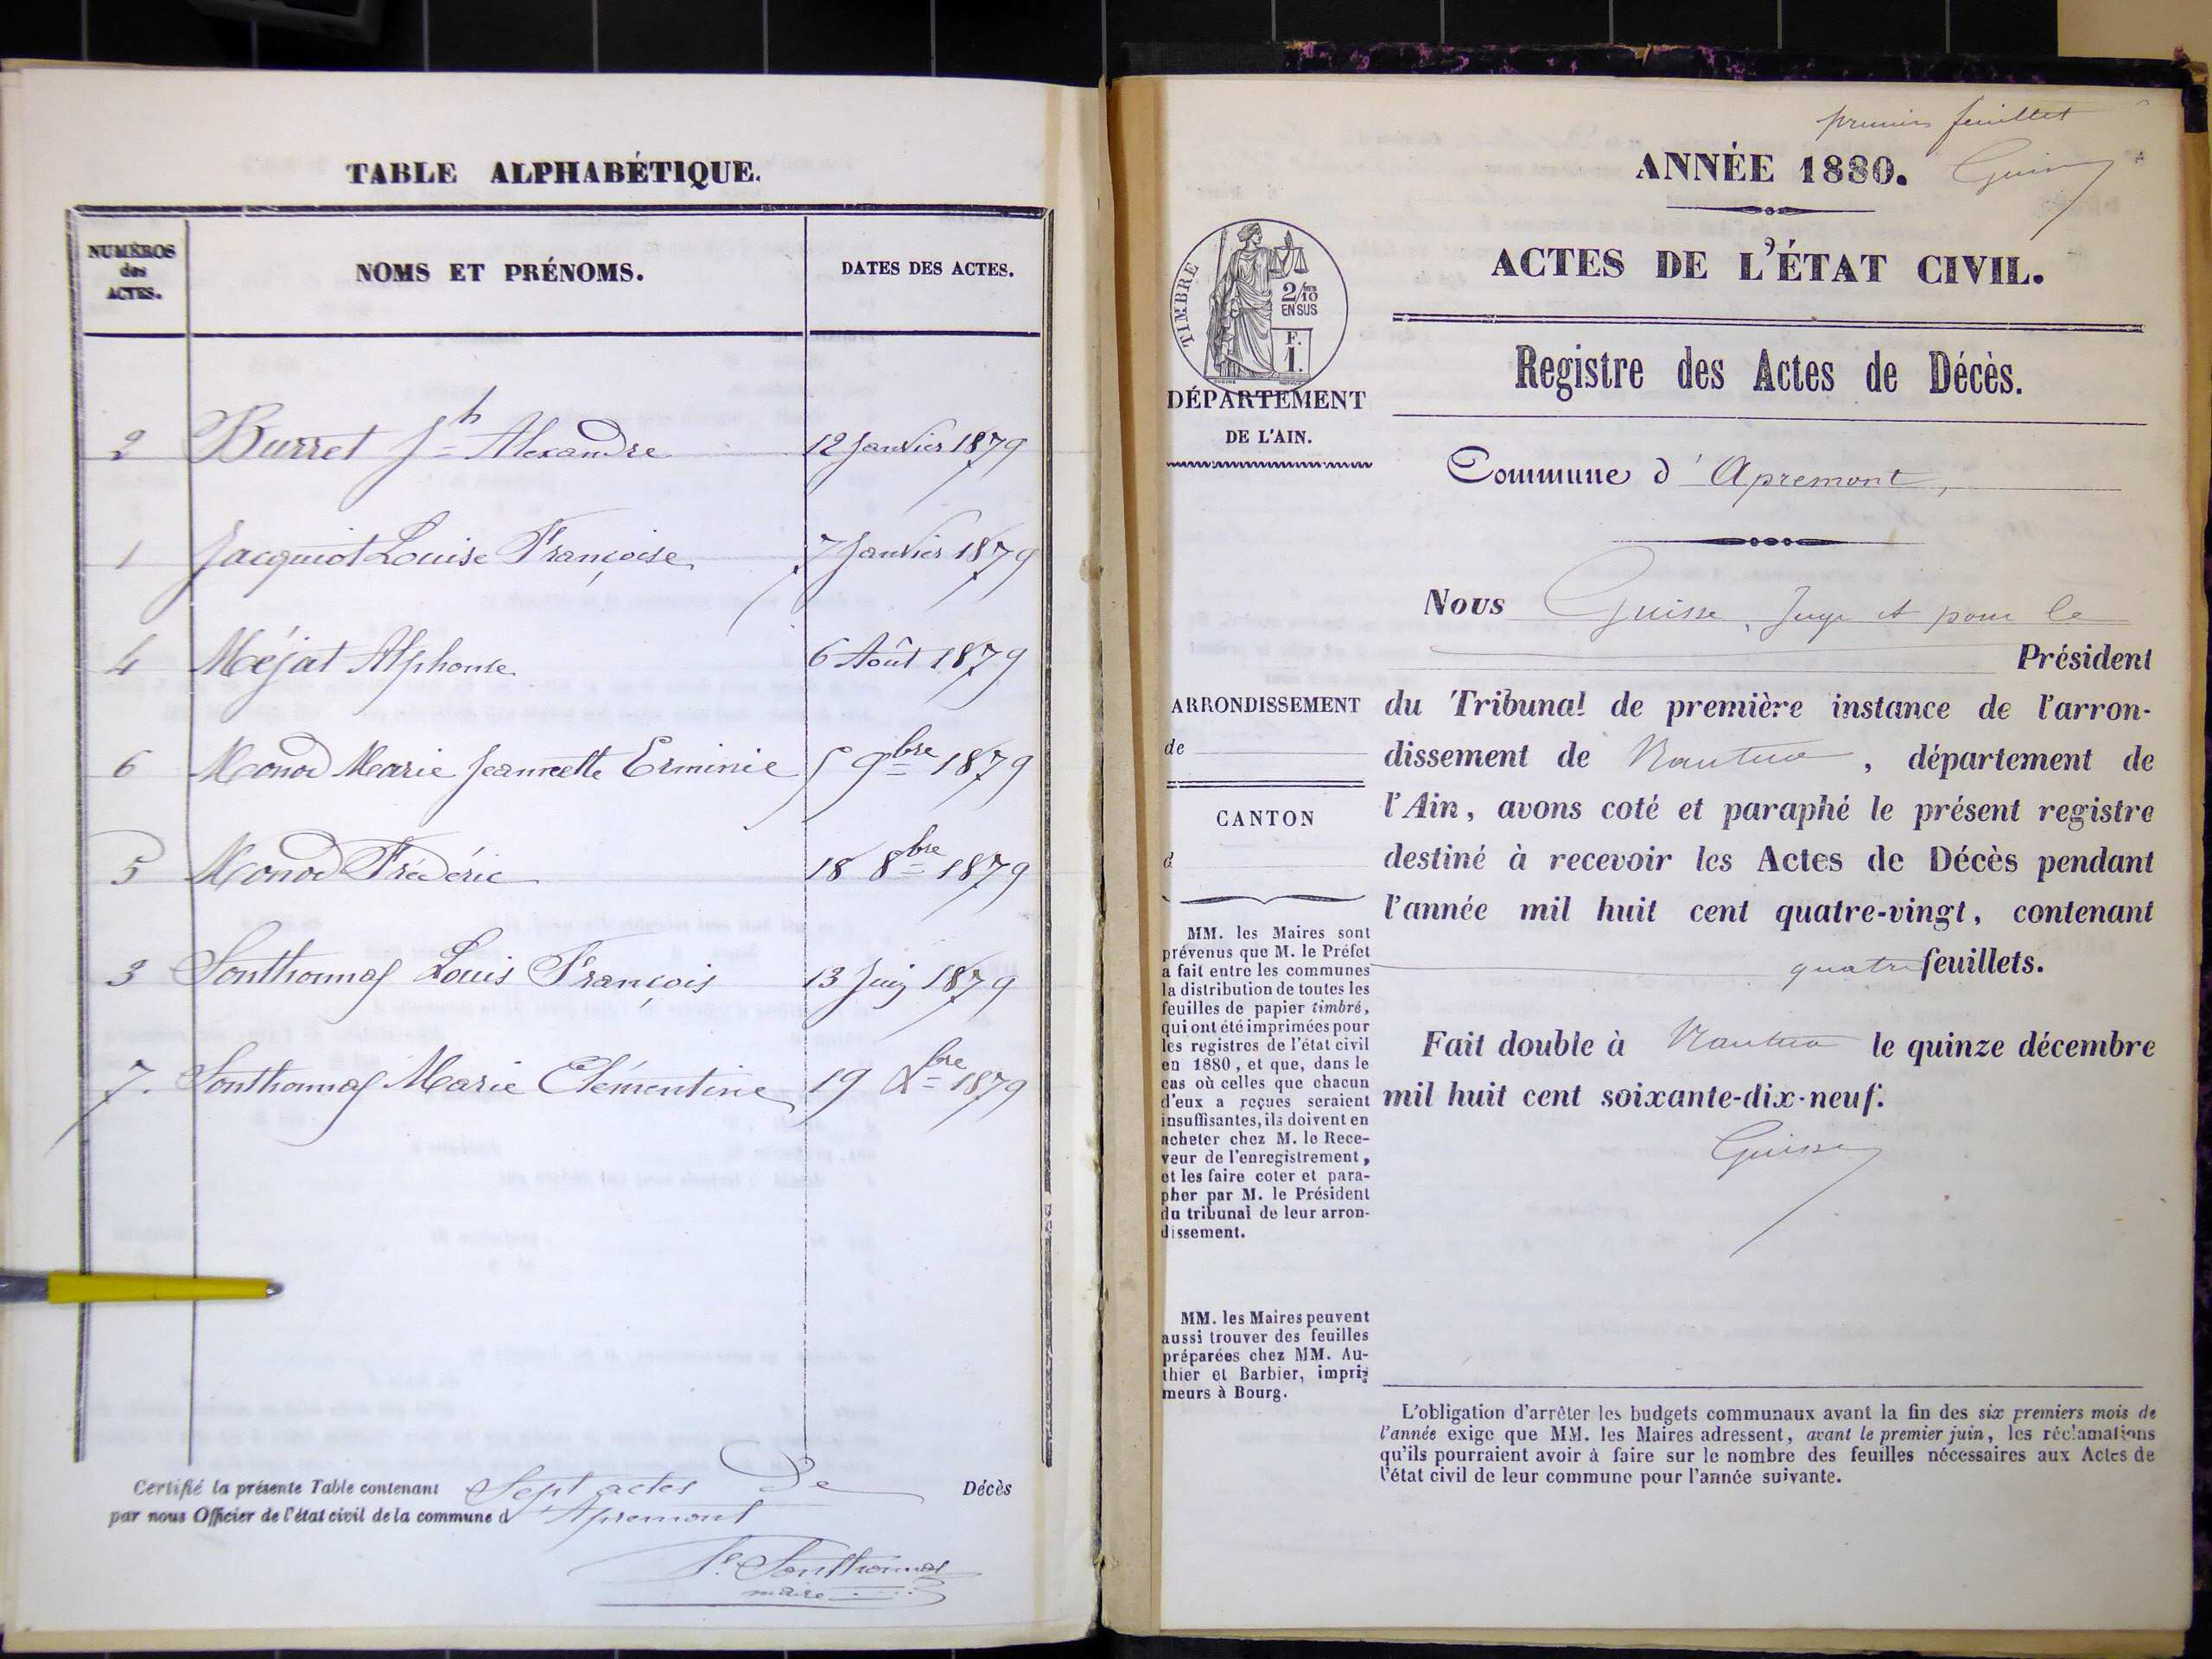 TABLE ALPHABÉTIQUE.
NUMÉROS
des
ACTES.
NOMS ET PRÉNOMS.
DATES DES ACTES.
2 Burret Jh Alexandre 12 Janvier 1879
1 Jacquiot Louise Françoise 7 Janvier 1879
4 Méjat Alphonse 6 Août 1879
6 Monod Marie Jeannette Erminie 5 9bre 1879
5 Monod Frédéric 18 8bre 1879
3 Sonthonnax Louis François 13 Juin 1879
7. Sonthonnax Marie Clémentine 19 Xbre 1879
Certifié la présente Table contenant Sept actes De Décès
par nous Officier de l'état civil de la commune d'Apremont
Sonthonnax
maire
premier feuillet
ANNÉE 1880.
ACTES DE L'ÉTAT CIVIL.
Registre des Actes de Décès.
TIMBRE
2/10
EN SUS
F.
1.
DÉPARTEMENT
DE L'AIN.
Commune d'Apremont,
Nous Guisse, Juge et pour le
Président
du Tribunal de première instance de l'arron-
dissement de Nantua, département de
l'Ain, avons coté et paraphé le présent registre
destiné à recevoir les Actes de Décès pendant
l'année mil huit cent quatre-vingt, contenant
quatre feuillets.
Fait double à Nantua le quinze décembre
mil huit cent soixante-dix-neuf.
Guisse
ARRONDISSEMENT
de
CANTON
d
MM. les Maires sont
prévenus que M. le Préfet
a fait entre les communes
la distribution de toutes les
feuilles de papier timbré,
qui ont été imprimées pour
les registres de l'état civil
en 1880, et que, dans le
cas où celles que chacun
d'eux a reçues seraient
insuffisantes, ils doivent en
acheter chez M. le Rece-
veur de l'enregistrement,
et les faire coter et para-
pher par M. le Président
du tribunal de leur arron-
dissement.
MM. les Maires peuvent
aussi trouver des feuilles
préparées chez MM. Au-
thier et Barbier, impri-
meurs à Bourg.
L'obligation d'arrêter les budgets communaux avant la fin des six premiers mois de
l'année exige que MM. les Maires adressent, avant le premier juin, les réclamations
qu'ils pourraient avoir à faire sur le nombre des feuilles nécessaires aux Actes de
l'état civil de leur commune pour l'année suivante.